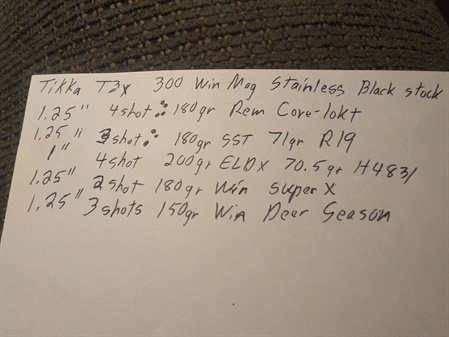 Tikka T3x 300 Win Mag Stainless Black stock
1.25" 4 shot 180gr Rem Core-lokt
1.25" 3 shot 180gr SST 71gr R19
1" 4 shot 200gr ELDX 70.5gr H4831
1.25" 2 shot 180gr Win Super X
1.25" 3 shots 150gr Win Deer Season